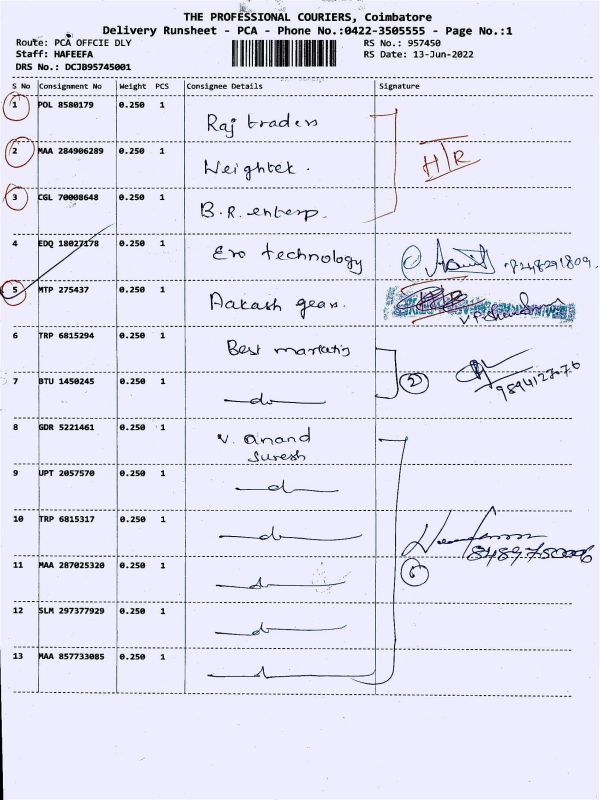 THE PROFESSIONAL COURIERS, Coimbatore
Delivery Runsheet - PCA - Phone No.:0422-3505555 - Page No.:1
Route: PCA OFFCIE DLY
RS No.: 957450
Staff: HAFEEFA
RS Date: 13-Jun-2022
DRS No.: DCJB95745001
S No Consignment No Weight PCS Consignee Details Signature
1 POL 8580179 0.250 1 Raj traders
2 MAA 284906289 0.250 1 Weightek. HTR
3 CGL 70008648 0.250 1 B.R. enterp.
4 EDQ 18027178 0.250 1 Ero technology
5 MTP 275437 0.250 1 Aakash gears.
6 TRP 6815294 0.250 1 Best marketing
7 BTU 1450245 0.250 1 do 2 9894127076
8 GDR 5221461 0.250 1 V. Anand
Suresh
9 UPT 2057570 0.250 1 do
10 TRP 6815317 0.250 1 do
11 MAA 287025320 0.250 1 do 6
12 SLM 297377929 0.250 1 do
13 MAA 857733085 0.250 1 do